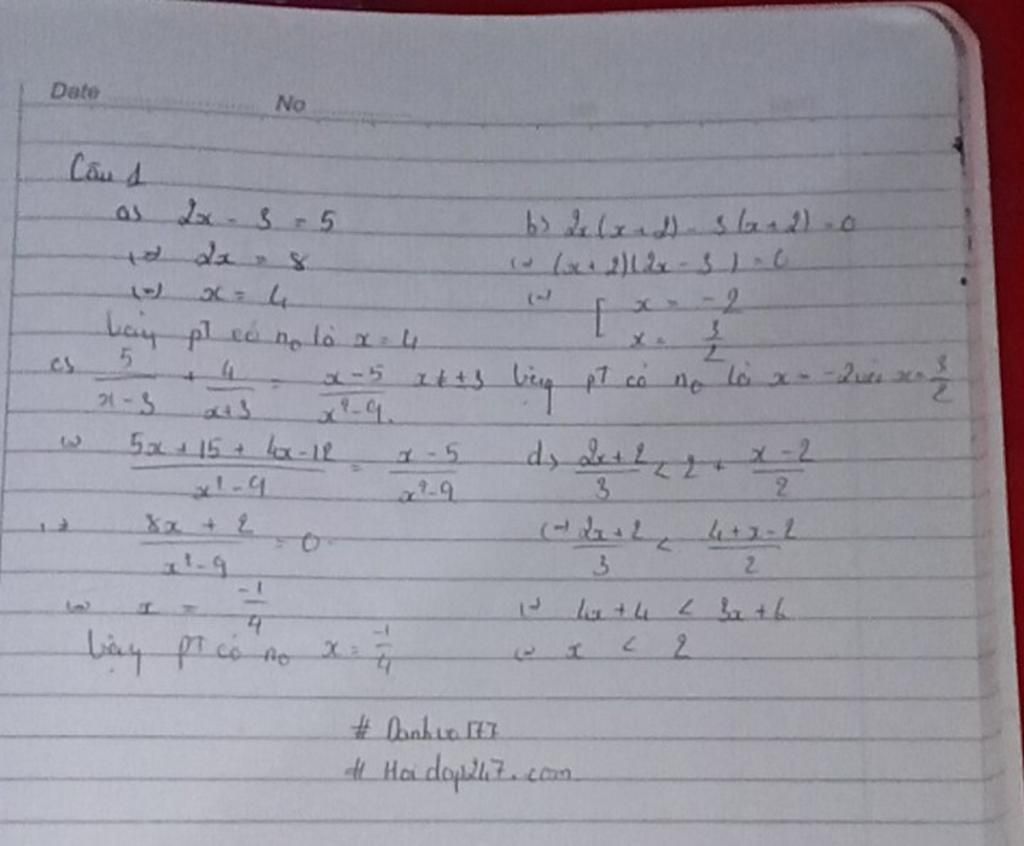 Date No
Câu 1
a) 2x - 3 = 5
(=) 2x = 8
(=) x = 4
Vậy pT có no là x = 4
b) 2x(x+2) - 3(x+2) = 0
(=) (x+2)(2x-3) = 0
(=) [ x = -2
x = 3/2
Vậy pT có no là x = -2 với x = 3/2
c) 5/(x-3) + 4/(x+3) = (x-5)/(x²-9) x ≠ ±3
(=) (5x+15+4x-12)/(x²-9) = (x-5)/(x²-9)
(=) (8x+2)/(x²-9) = 0
(=) x = -1/4
Vậy pT có no x = -1/4
d) (2x+2)/3 < 2 + (x-2)/2
(=) (2x+2)/3 < (4+x-2)/2
(=) 4x+4 < 3x+6
(=) x < 2
# Danhvo177
# Hoidap247.com